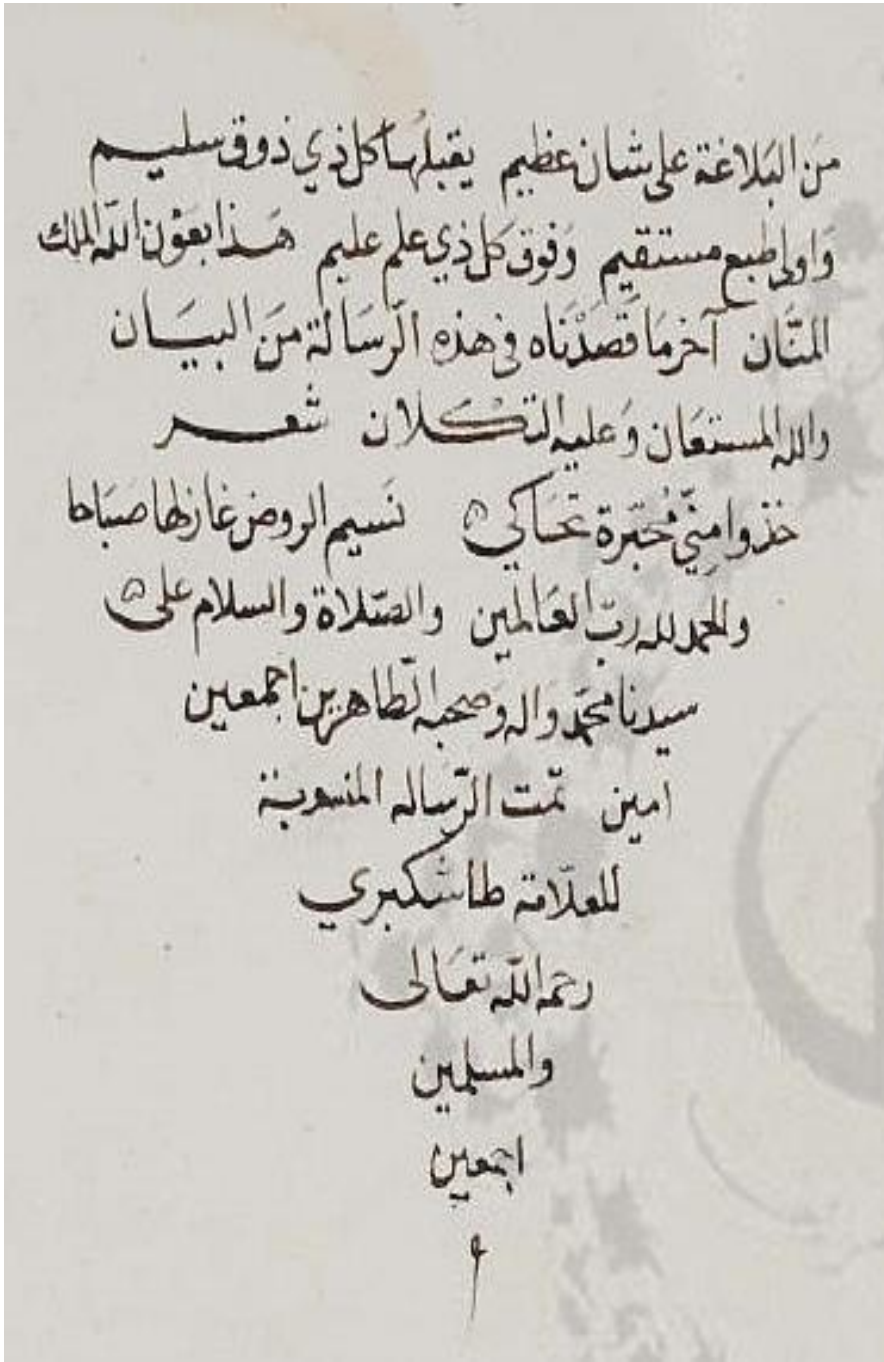 مَن البَلاغة على شان عظيم يقبلها كل ذي ذوق سليم
وَاولى طبع مستقيم وَفوق كل ذي علم عليم هذا بعَوْن اللّه الملك
المنَّان آخر مَا قَصَدْنَاه في هذه الرّسَالة مَن البيَان
والله المستعَان وَعليه التكلان شعر
خذوا مِنّي مُحَبّرة تحَاكي نسَيم الروض غازلها صبَاحا
والحمد لله ربّ العَالمين والصّلاة والسلام على
سيدنا محمّد وَاله وَصحبه الطّاهرين اجمعين
امين تمّت الرّساله المنسوبة
للعلاّمة طاشكبري
رحمه اللّه تعَالى
والمسلمين
اجمعين
م